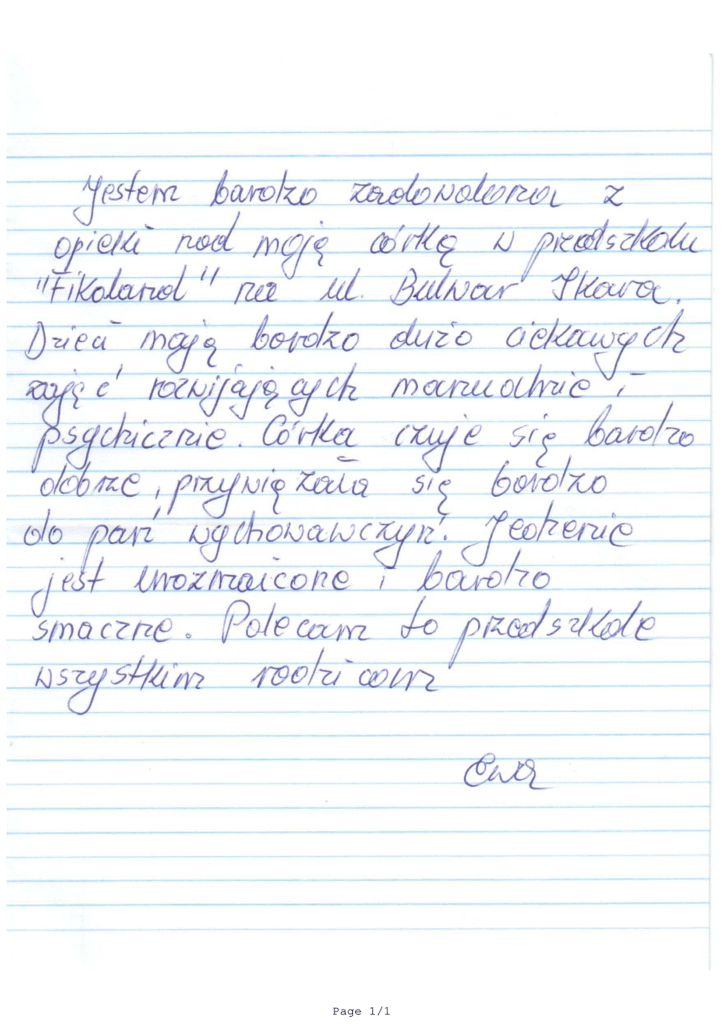 Jestem bardzo zadowolona z
opieki nad moją córką w przedszkolu
"Fikoland" na ul. Bulwar Ikara.
Dzieci mają bardzo dużo ciekawych
zajęć rozwijających manualnie i
psychicznie. Córka czuje się bardzo
dobrze, przywiązała się bardzo
do pań wychowawczyń. Jedzenie
jest urozmaicone i bardzo
smaczne. Polecam to przedszkole
wszystkim rodzicom
Ewa
Page 1/1